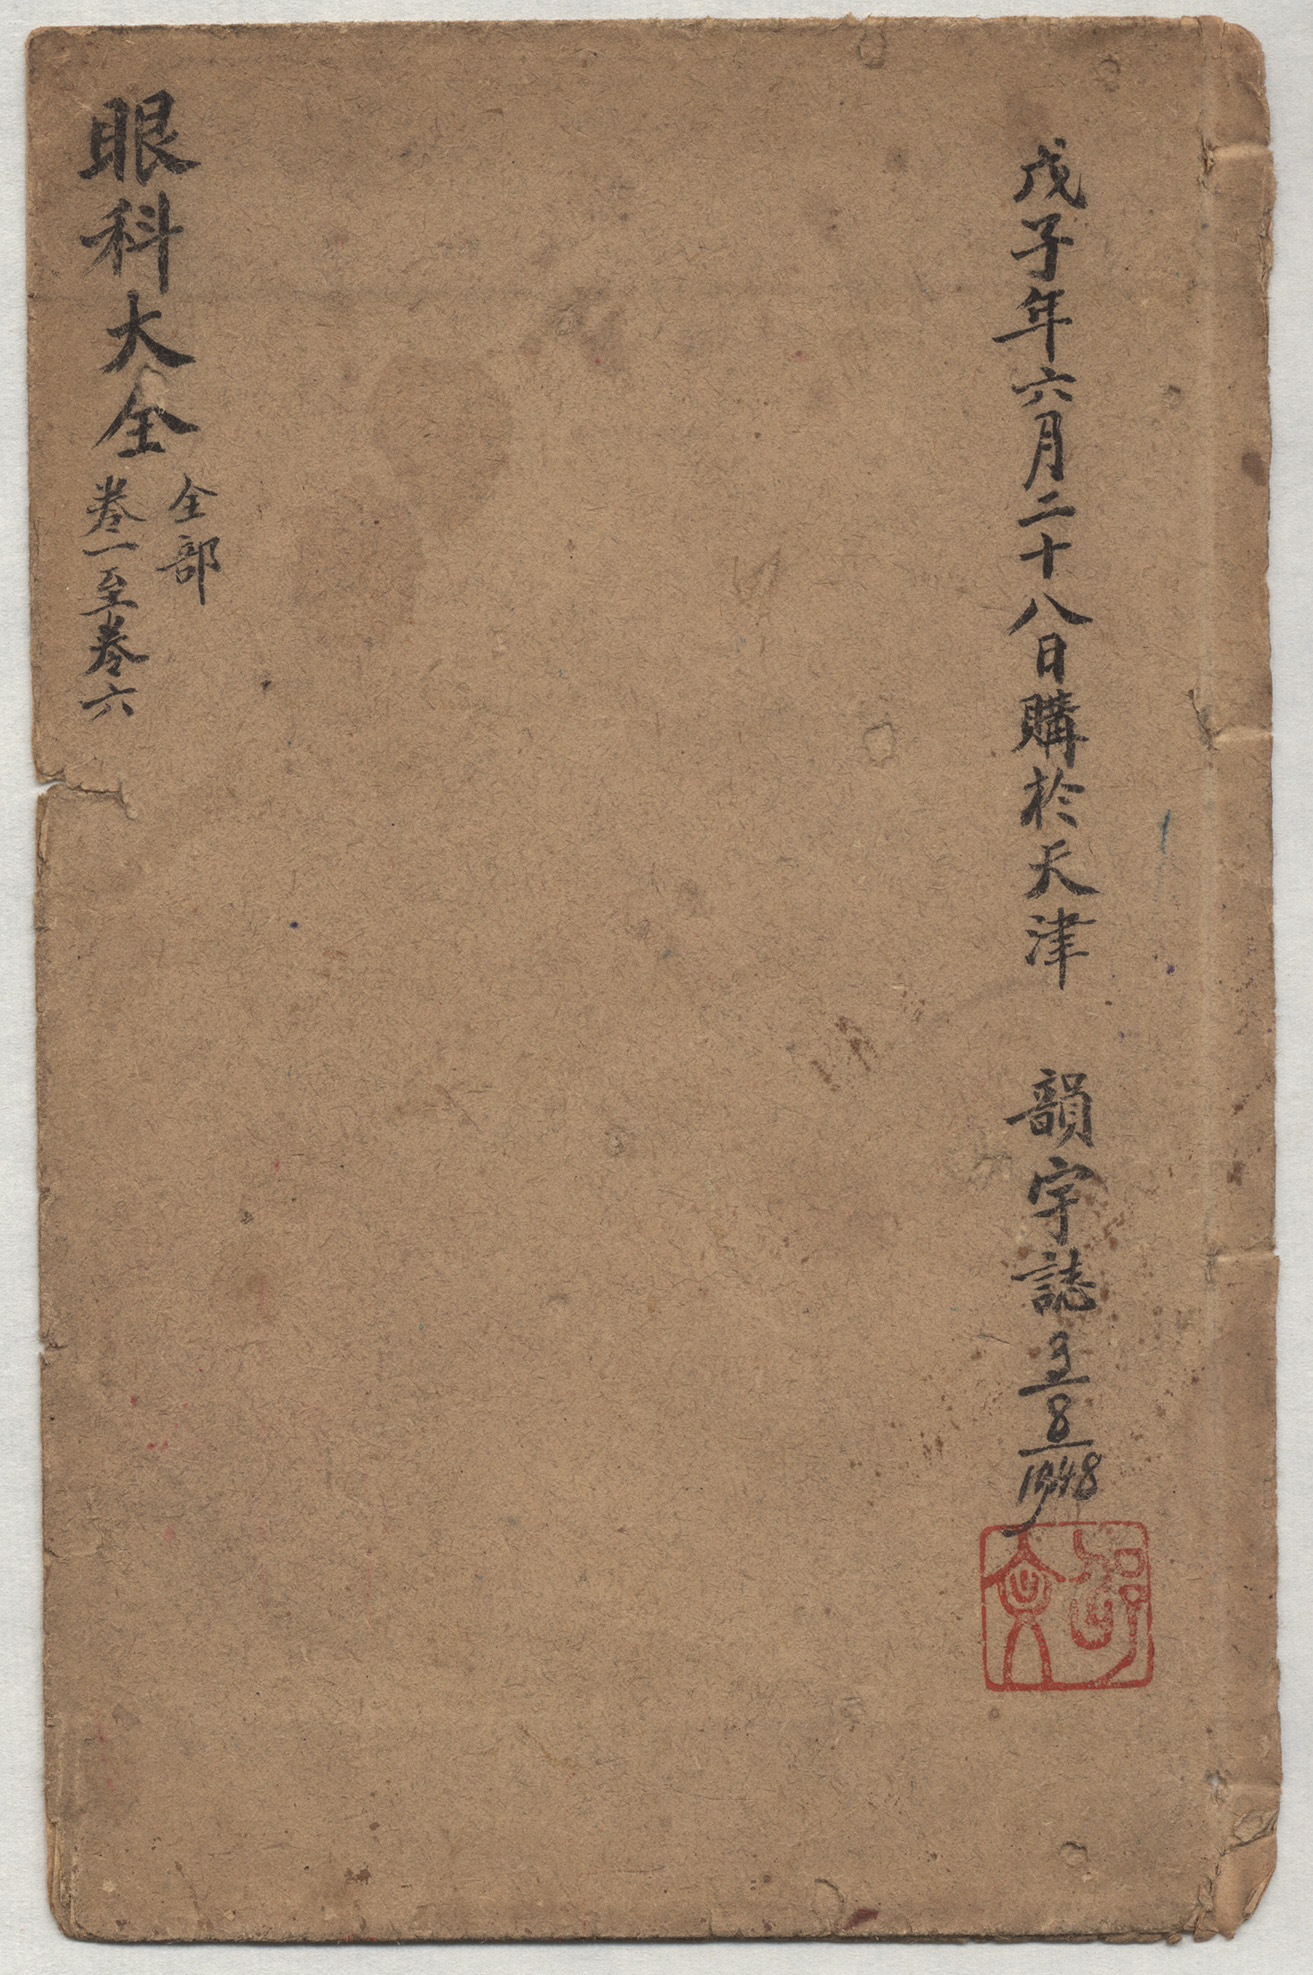 戊子年六月二十八日購於天津 韻宇誌 3/8/1948
眼科大全
全部
卷一至卷六